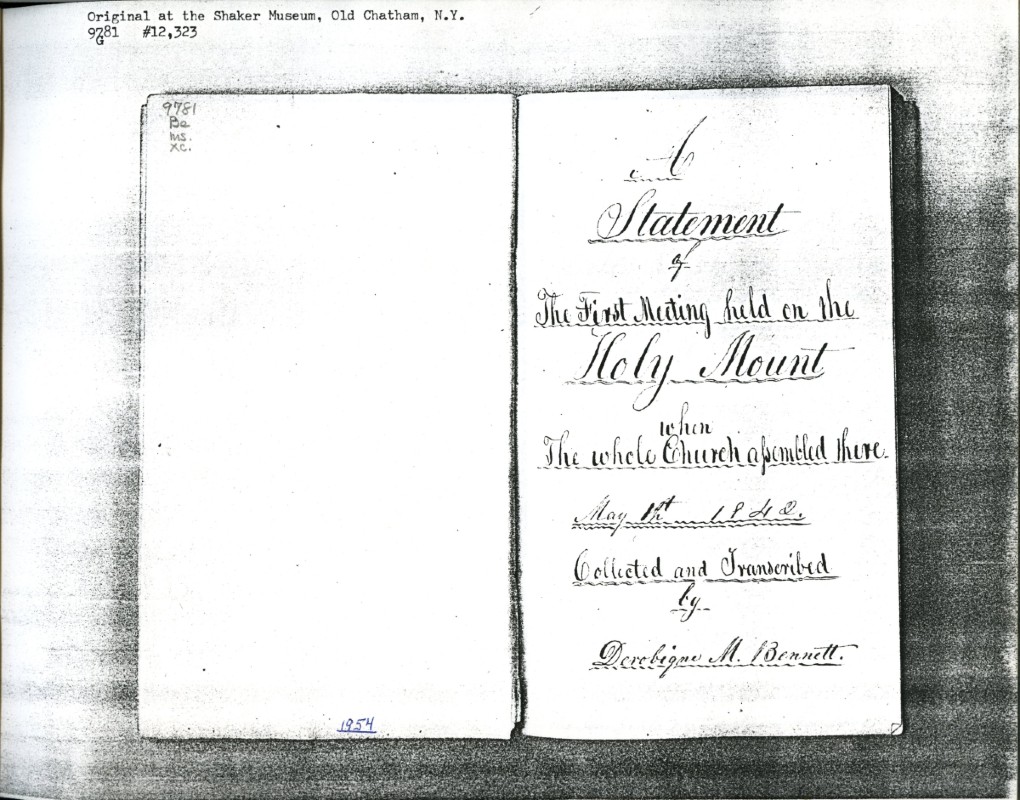 Original at the Shaker Museum, Old Chatham, N.Y.
9781 #12,323
G
9781
Be
ms.
xc.
1954
A
Statement
of
The First Meeting held on the
Holy Mount
when
The whole Church aſsembled there.
May 1st 1842.
Collected and Transcribed
by
Derobigne M. Bennett.